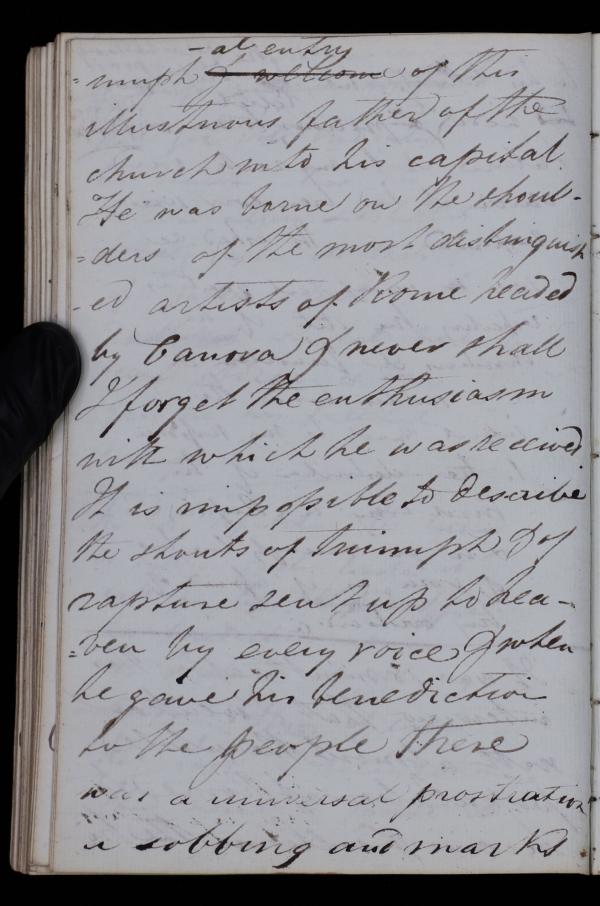 -al entry
=umph & wellcome of this
illustrious father of the
church into his capital.
He was borne on the shoul-
=ders of the most distinguish
-ed artists of Rome headed
by Canova & never shall
I forget the enthusiasm
with which he was received
It is impossible to describe
the shouts of triumph & of
rapture sent up to hea-
=ven by every voice & when
he gave his benediction
to the people there
was a universal prostration
a sobbing and marks